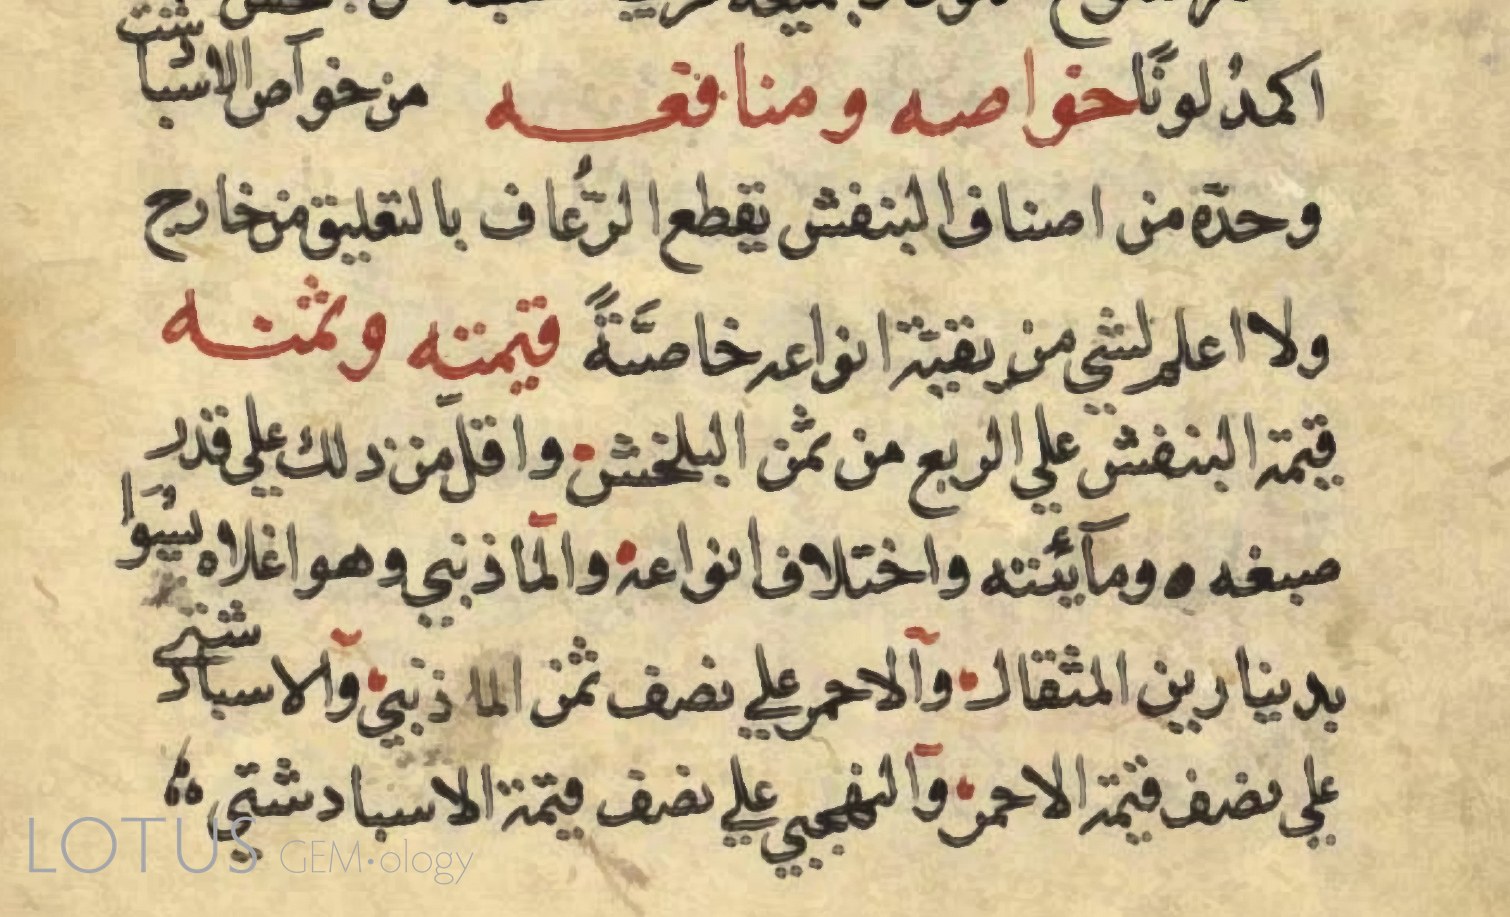 اكمد لونًا خواصه ومنافعه من خواص الاسبادشت
وحدّه من اصناف البنفش يقطع الرُّعاف بالتعليق من خارج
ولا اعلم لشي من بقية انواعه خاصَّةً قيمته وثمنه
قيمة البنفش علي الربع من ثمن البلخش واقل من ذلك علي قدر
صبغه ومآئيته واختلاف انواعه والماذنبي وهو اغلاه يسوا
بدينارين المثقال والاحمر علي نصف ثمن الماذنبي والاسبادشتي
علي نصف قيمة الاحمر والنفجي علي نصف قيمة الاسبادشتي
LOTUS GEM•ology